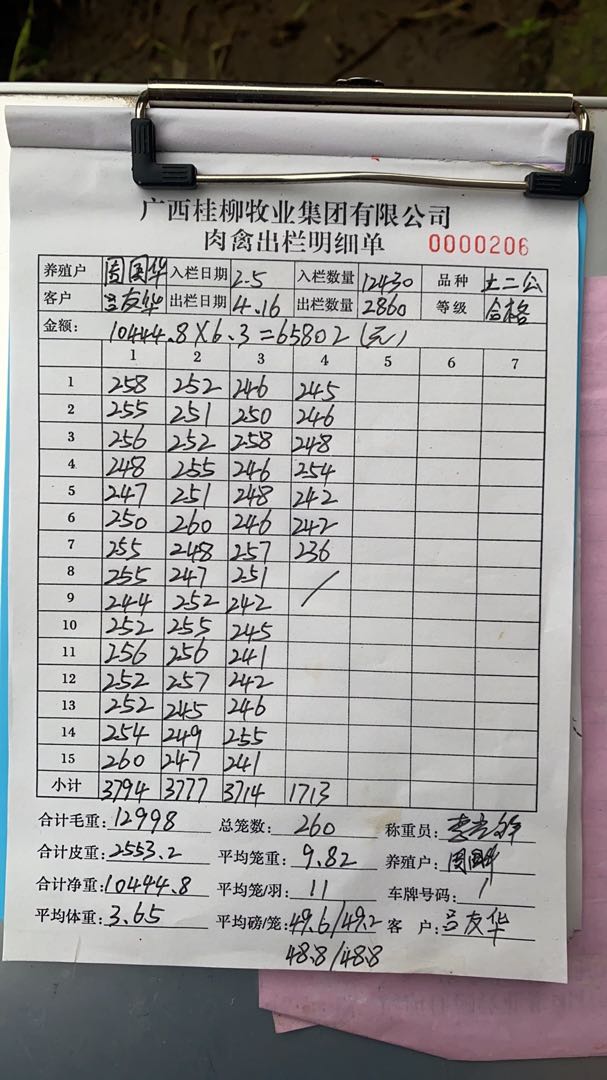 广西桂柳牧业集团有限公司
肉禽出栏明细单 0000206
养殖户 周国华 入栏日期 2.5 入栏数量 12430 品种 土二公
客户 吕友华 出栏日期 4.16 出栏数量 2860 等级 合格
金额: 10444.8×6.3=65802(元)
1 2 3 4 5 6 7
1 258 252 246 245
2 255 251 250 246
3 256 252 258 248
4 248 255 246 254
5 247 251 248 242
6 250 260 246 242
7 255 248 257 236
8 255 247 251 /
9 244 252 242
10 252 255 245
11 256 256 241
12 252 257 242
13 252 245 246
14 254 249 255
15 260 247 241
小计 3794 3777 3714 1713
合计毛重: 12998 总笼数: 260 称重员:
合计皮重: 2553.2 平均笼重: 9.82 养殖户: 周国华
合计净重: 10444.8 平均笼/羽: 11 车牌号码: /
平均体重: 3.65 平均磅/笼: 49.6/49.2 客 户: 吕友华
48.8/48.8